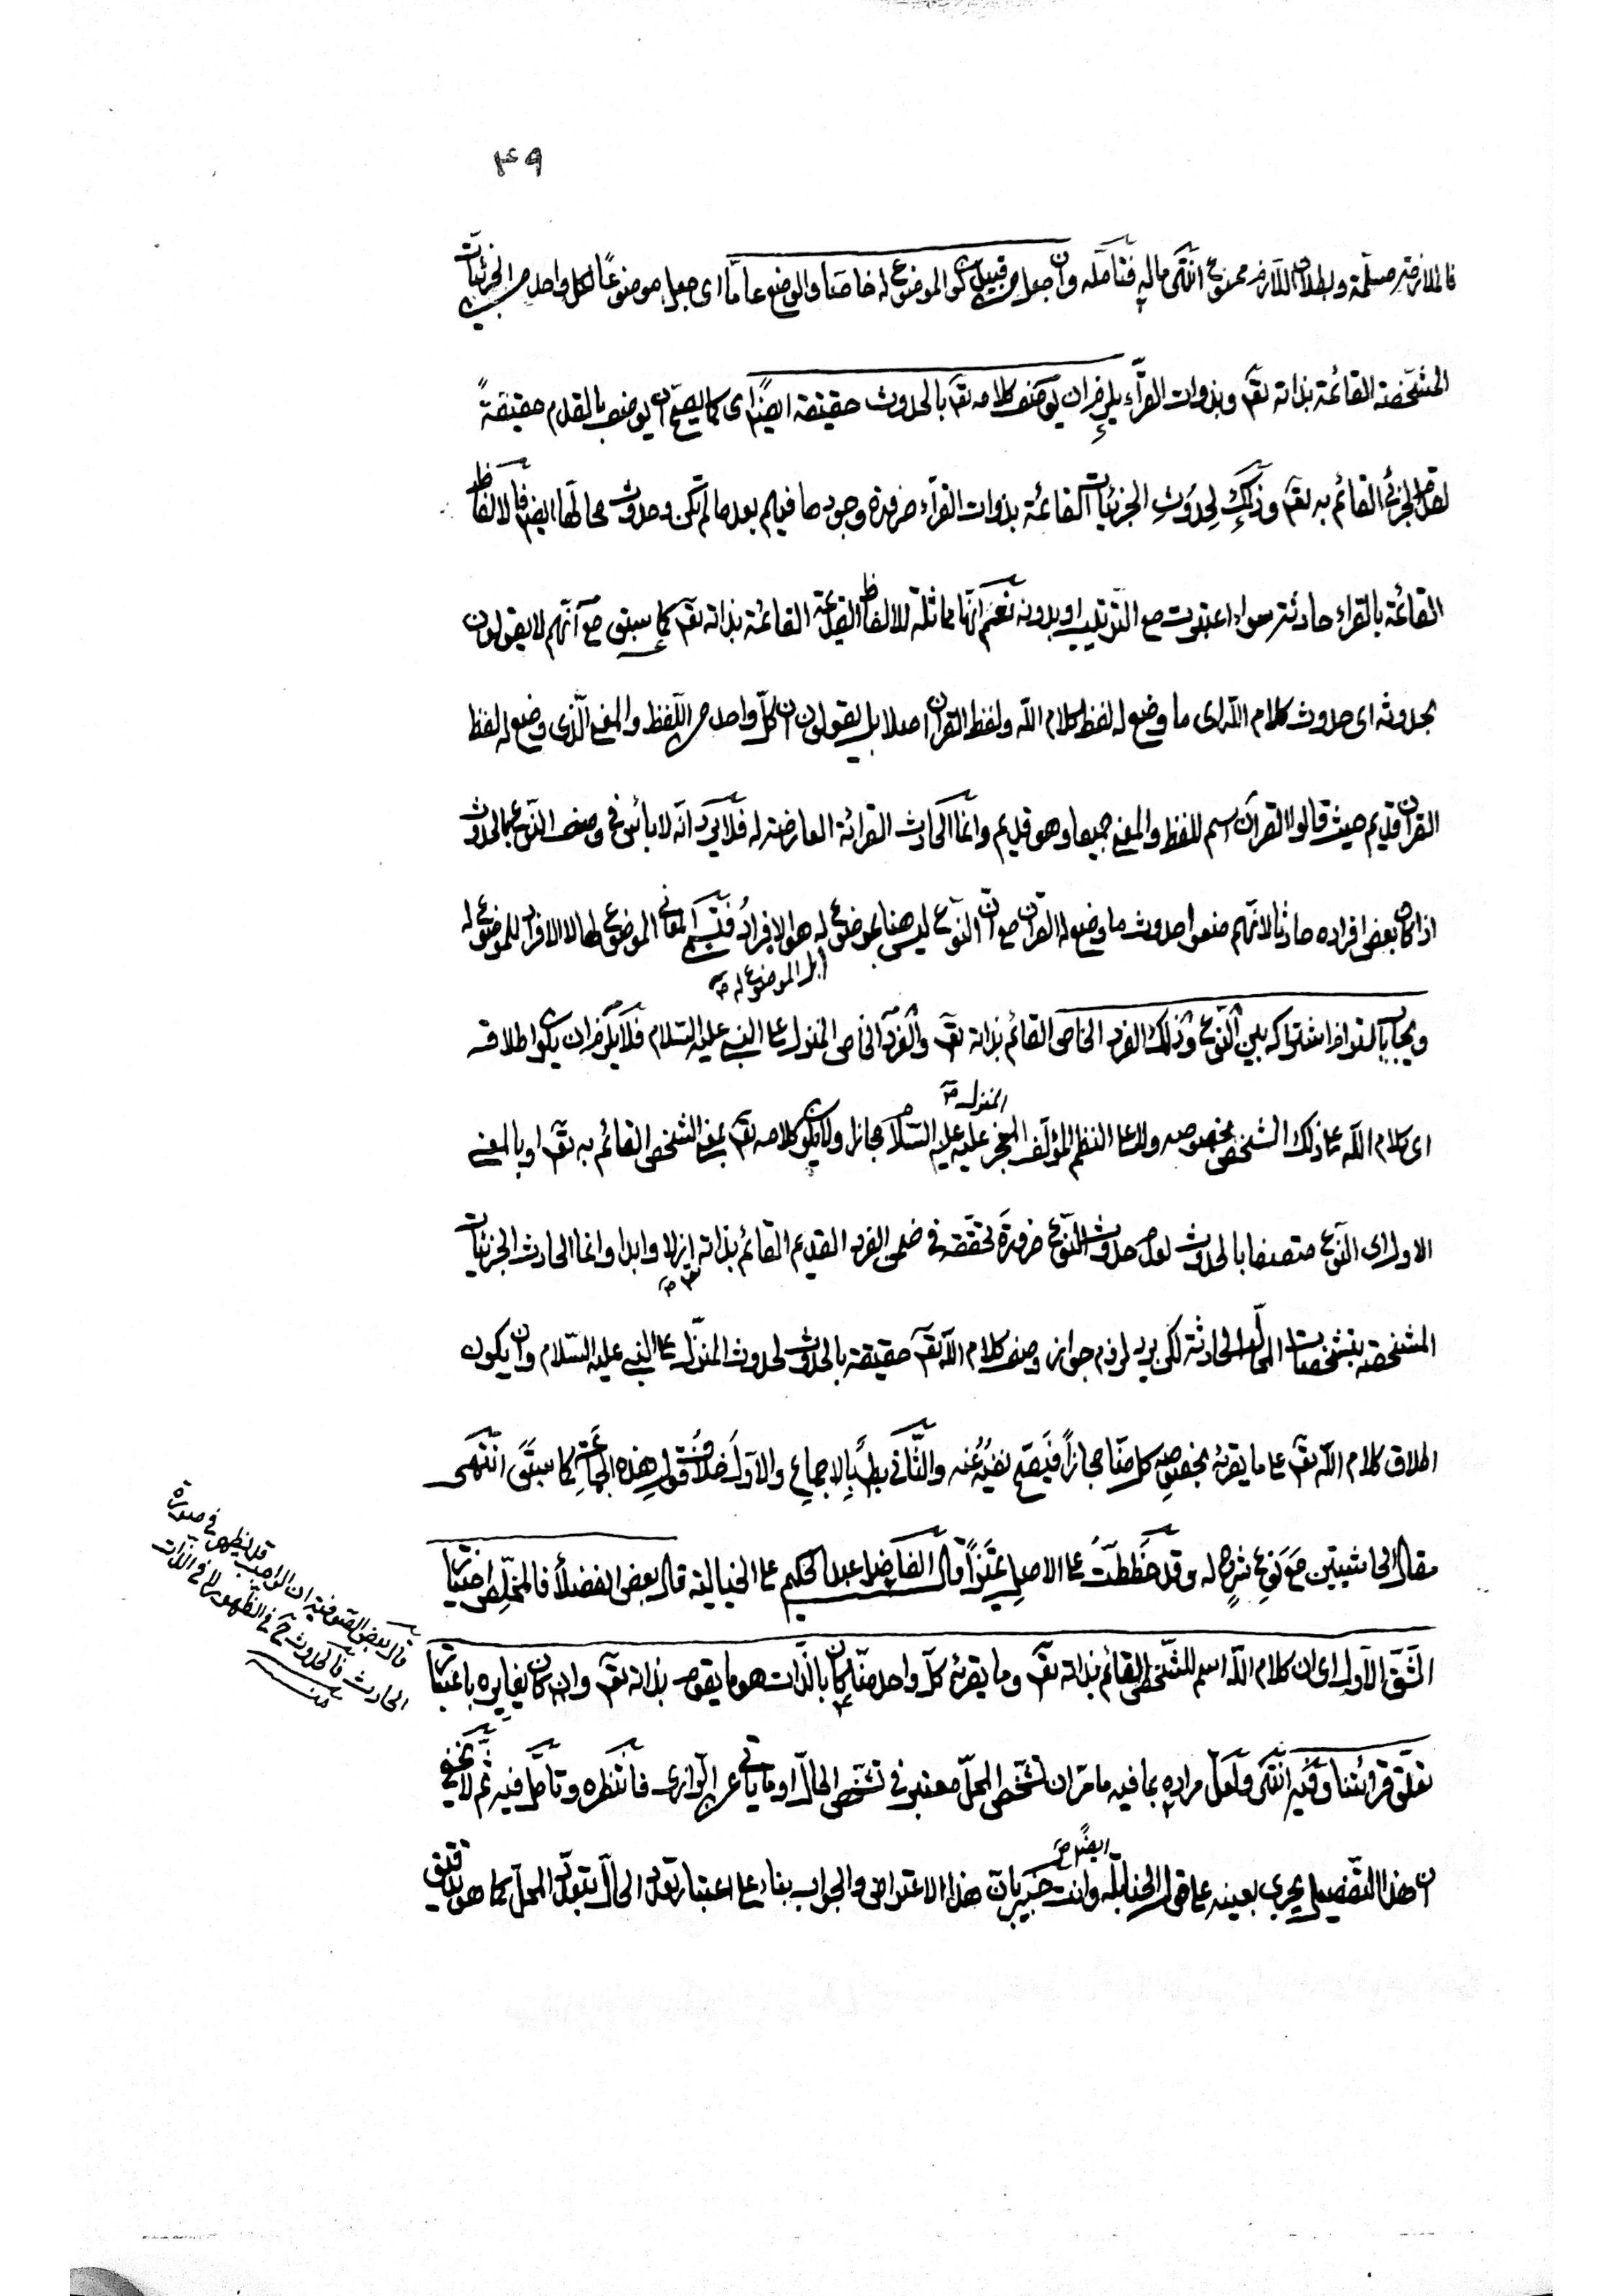 ٤٩
فالملازمة مسلّمة وبطلان اللازم ممنوع انتهى ماله فتأمله وان جعل من قبيل كون الموضوع له خاصّا والوضع عامّا اى جعل موضوعًا لكل واحد من الجزئيات
المشخّصة القائمة بذاته تعَٓ وبذوات القرّاء يلزم ان يوصف كلامه تعَٓ بالحدوث حقيقة ايضًا اى كما يصحّ ان يوصف بالقدم حقيقةً
الجزئى القائم به تعَٓ وذلك لحدوث الجزئيات القائمة بذوات القرّاء ضرورة وجودها فيهم بعد ما لم تكن وحدوث محالّها ايضا فالالفاظ
القائمة بالقراء حادثة سواء اعتبرت مع الترتيب او بدونه نعم انّها مماثلة للالفاظ القديمة القائمة بذاته تعَٓ كما سبق مع انّهم لا يقولون
بحدوثه اى حدوث كلام اللّه اى ما وضع له لفظ كلام اللّه ولفظ القرآن اصلا بل يقولون ان كلّ واحد من اللّفظ والمعنى الّذى وضع له لفظ
القرآن قديم حيث قالوا القرآن اسم للفظ والمعنى جميعا وهو قديم وانّما الحادث القرائة العارضة له فلا يرد انّه لا بأس فى وصف النّوع بالحدوث
اذا كان بعض افراده حادثا لانّهم منعوا حدوث ما وضع له القرآن مع ان النّوع ليس هنا بموضوع له هو الافراد المعانى الموضوع لها لا الافراد للموضوع له
بل الموضوع له صح
ويجاب بالتزام اشتراكه بين النّوع وذلك الفرد الخاص القائم بذاته تعَٓ والفرد الخاص المنزل على النبى عليه السّلام فلا يلزم ان يكون اطلاقه
المنزل صح
اى كلام اللّه على ذلك الشخص بخصوصه ولا على النظم المؤلّف المعجز عليه عليه السّلام مجازا ولا يكون كلامه تعَٓ بمعنى الشخص القائم به تعَٓ او بالمعنى
الاول اى النّوع متصفا بالحدوث لعدم حدوث النّوع ضرورة تحقّقه فى ضمن الفرد القديم القائم بذاته ازلا وابدا وانما الحادث الجزئيات
تعَٓ صح
المشخصة بتشخصات المحالّ الحادثة لكن يرد لزوم جواز وصف كلام اللّه تعَٓ حقيقة بالحدوث لحدوث المنزّل على النبى عليه السّلام وان يكون
اطلاق كلام اللّه تعَٓ على ما يقرئه بخصوصه كل منّا مجازًا فيصح نفيه عنه والثّانى بط بالاجماع والاوّل خلاف قول هذه الجماعة كما سبق انتهى
مقال الحاشيتين مع نوع شرح له وقد خططت على الاصل تميّزًا قال الفاضل عبد الحكيم على الخيالية قال بعض الفضلاء فالمخلص اختيار
الشّقّ الاوّل اى ان كلام اللّه اسم للشّخص القائم بذاته تعَٓ وما يقرئه كلّ واحد منّا كان بالذّات هو ما يقوم بذاته تعَٓ وان كان يغايره باعتبار
تعلّق قرائتنا وفيه انتهى ولعلّ مراده بما فيه ما مرّ ان تشخّص المحلّ معتبر فى تشخّص الحالّ او ما يأتى عن الوارى فانتظره وتأمّل فيه ثم لا يخفى
ايضًا صح
ان هذا التفصيل يجرى بعينه على قول الحنابلة وانت خبير بان هذا الاعتراض والجواب بناء على اعتبار تعدّد الحالّ بتعدّد المحلّ كما هو تدقيق
قال بعض الصّوفية ان الواجب قد يظهر فى صورة
الحادث فالحدوث ح فى الظهور لا فى الذّات
منه